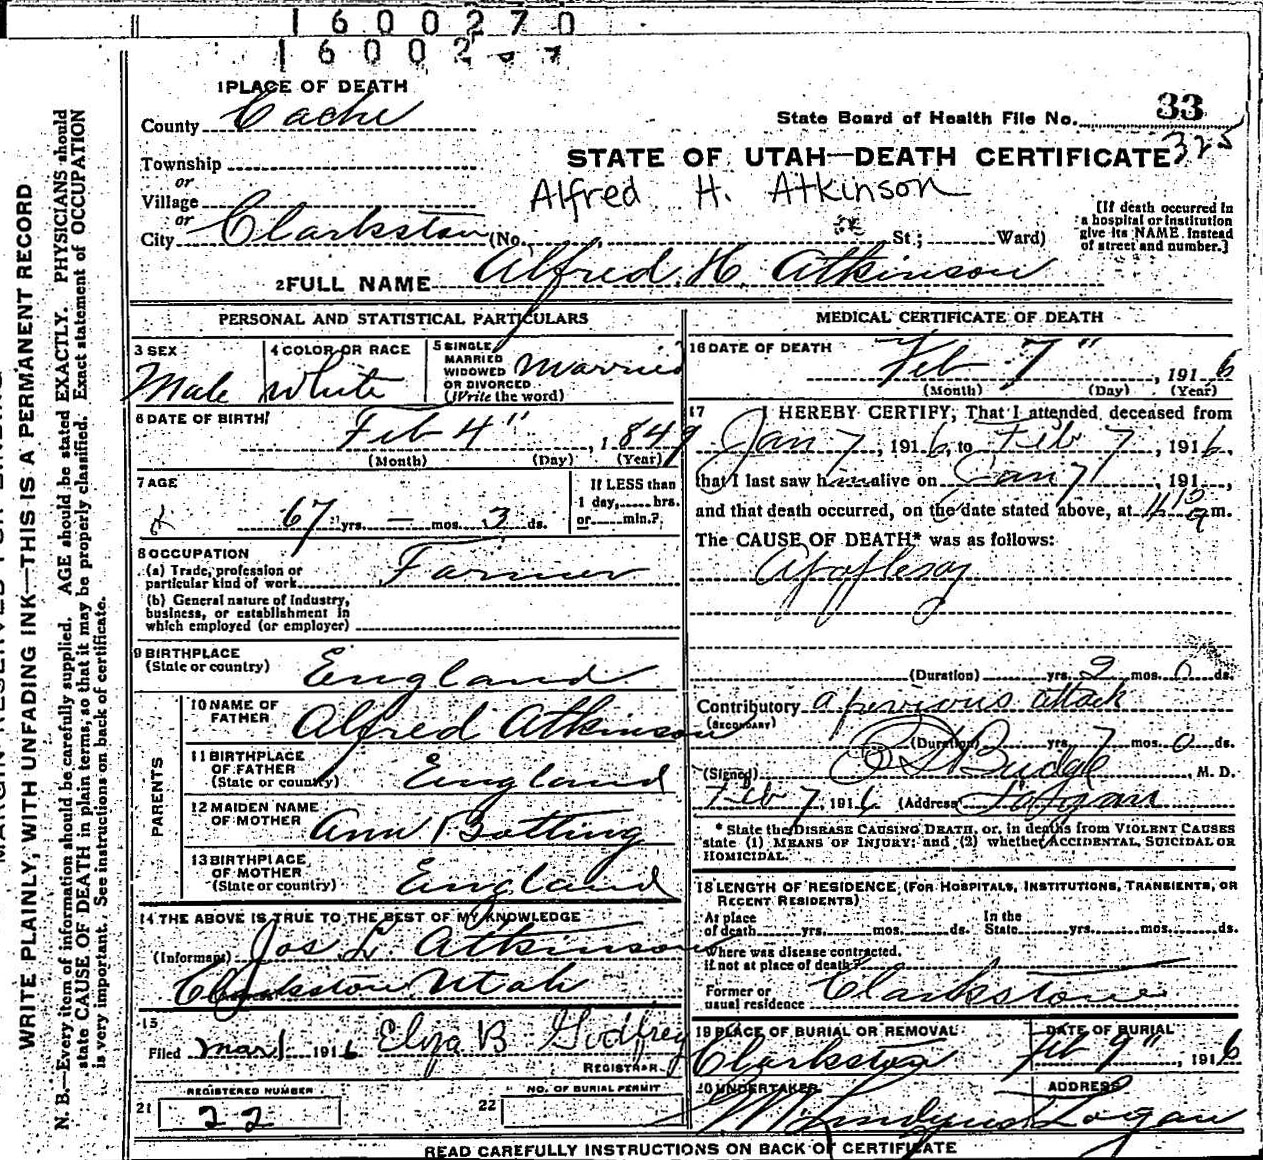 1600270
16002
1 PLACE OF DEATH
County Cache
State Board of Health File No. 33
325
Township
or
STATE OF UTAH—DEATH CERTIFICATE
Village
or
Alfred H. Atkinson
City Clarkston (No. St.; Ward)
[If death occurred in
a hospital or institution
give its NAME instead
of street and number.]
2 FULL NAME Alfred H. Atkinson
PERSONAL AND STATISTICAL PARTICULARS
3 SEX
Male
4 COLOR OR RACE
White
5 SINGLE
MARRIED
WIDOWED
OR DIVORCED
(Write the word)
Married
6 DATE OF BIRTH
Feb 4", 1849
(Month) (Day) (Year)
7 AGE
67 yrs. — mos. 3 ds.
If LESS than
1 day, hrs.
or min.?
8 OCCUPATION
(a) Trade, profession or
particular kind of work Farmer
(b) General nature of Industry,
business, or establishment in
which employed (or employer)
9 BIRTHPLACE
(State or country) England
PARENTS
10 NAME OF
FATHER Alfred Atkinson
11 BIRTHPLACE
OF FATHER
(State or country) England
12 MAIDEN NAME
OF MOTHER Ann Botting
13 BIRTHPLACE
OF MOTHER
(State or country) England
14 THE ABOVE IS TRUE TO THE BEST OF MY KNOWLEDGE
(Informant) Jos L. Atkinson
Clarkston Utah
15
Filed Mar 1 1916 Eliza B Godfrey
REGISTRAR
REGISTERED NUMBER
21 22
NO. OF BURIAL PERMIT
22
MEDICAL CERTIFICATE OF DEATH
16 DATE OF DEATH
Feb 7", 1916
(Month) (Day) (Year)
17 I HEREBY CERTIFY, That I attended deceased from
Jan 7, 1916, to Feb 7, 1916,
that I last saw him alive on Jan 7, 191 ,
and that death occurred, on the date stated above, at m.
The CAUSE OF DEATH* was as follows:
Apoplexy
(Duration) yrs. 2 mos. 0 ds.
Contributory a previous attack
(SECONDARY)
(Duration) yrs. 7 mos. 0 ds.
(Signed) Budge, M. D.
Feb 7, 1916 (Address) Logan
* State the DISEASE CAUSING DEATH, or, in deaths from VIOLENT CAUSES
state (1) MEANS OF INJURY; and (2) whether ACCIDENTAL, SUICIDAL OR
HOMICIDAL.
18 LENGTH OF RESIDENCE (FOR HOSPITALS, INSTITUTIONS, TRANSIENTS, OR
RECENT RESIDENTS)
At place
of death yrs. mos. ds.
In the
State yrs. mos. ds.
Where was disease contracted,
if not at place of death?
Former or
usual residence Clarkston
19 PLACE OF BURIAL OR REMOVAL
Clarkston
DATE OF BURIAL
Feb 9", 1916
20 UNDERTAKER
ADDRESS
Logan
READ CAREFULLY INSTRUCTIONS ON BACK OF CERTIFICATE
WRITE PLAINLY, WITH UNFADING INK—THIS IS A PERMANENT RECORD
N. B.—Every item of information should be carefully supplied. AGE should be stated EXACTLY. PHYSICIANS should
state CAUSE OF DEATH in plain terms, so that it may be properly classified. Exact statement of OCCUPATION
is very important. See instructions on back of certificate.